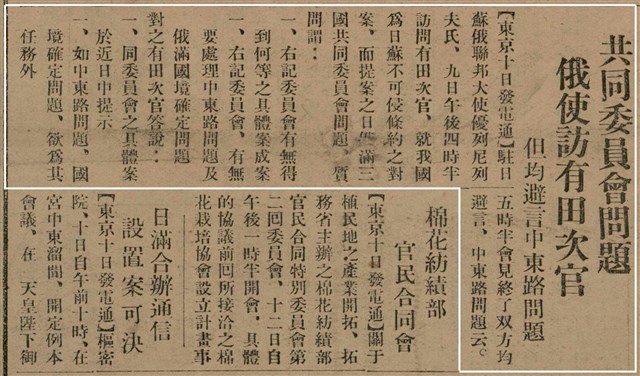 共同委員會問題
俄使訪有田次官
但均避言中東路問題
【東京十日發電通】駐日
蘇俄聯邦大使優列尼列
夫氏、九日午後四時半
訪問有田次官、就我國
為日蘇不可侵條約之對
案、而提案之日俄滿三
國共同委員會問題、質
問謂：
一、右記委員會有無得
到何等之具體案成案
一、右記委員會、有無
要處理中東路問題及
俄滿國境確定問題
對之有田次官答說：
一、同委員會之具體案
於近日中提示
一、如中東路問題、國
境確定問題、欲為其
任務外
五時半會見終了双方均
避言、中東路問題云。
棉花紡績部
官民合同會
【東京十日發電通】關于
植民地之產業開拓、拓
務省主辦之棉花紡績部
官民合同特別委員會第
二回委員會、十二日自
午後一時半開會、具體
的協議前回所接洽之棉
花栽培協會設立計畫事
日滿合辦通信
設置案可決
【東京十日發電通】樞密
院、十日自午前十時、在
宮中東溜間、開定例本
會議、在 天皇陛下御